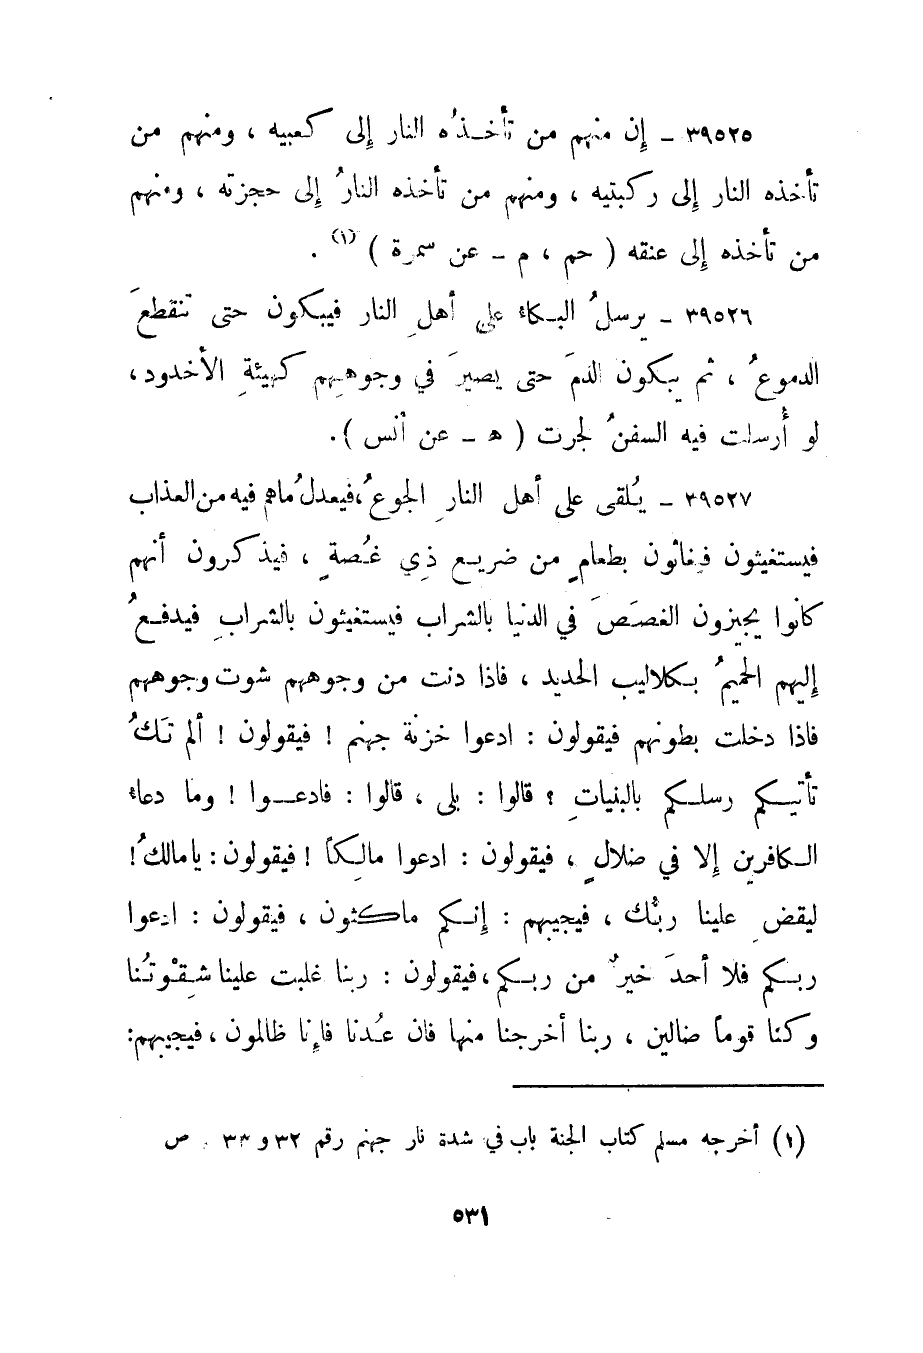 ٣٩٥٢٥ ـ إن منهم من تأخـذُه النار إلى كعبيه ، ومنهم من
تأخذه النار إلى ركبتيه ، ومنهم من تأخذه النارُ إلى حجزته ، ومنهم
من تأخذه إلى عنقه ( حم ، م ـ عن سمرة ) (١) .
٣٩٥٢٦ ـ يرسلُ البـكاء على أهلِ النار فيبكون حتى تنقطعَ
الدموعُ ، ثم يبكون الدمَ حتى يصيرَ في وجوههم كهيئةِ الأخدود ،
لو أُرسلت فيه السفنُ لجرت ( هـ ـ عن أنس ) .
٣٩٥٢٧ ـ يُلقى على أهل النارِ الجوعُ ، فيعدلُ ماهم فيه من العذاب
فيستغيثون فيغاثون بطعامٍ من ضريـع ذِي غُـصةٍ ، فيذكرون أنهم
كانوا يجيزون الغصَصَ في الدنيا بالشراب فيستغيثون بالشرابِ فيدفـعُ
إليهم الحميمُ بـكلاليب الحديد ، فاذا دنت من وجوههم شوت وجوههم
فاذا دخلت بطونهم فيقولون : ادعوا خزنة جهنم ! فيقولون ! ألم تَكُ
تأتيـكم رسلـكم بالبنياتِ ؟ قالوا : بلى ، قالوا : فادعـوا ! وما دعاء
الـكافرين إلا في ضلالٍ ، فيقولون : ادعوا مالِكاً ! فيقولون : يا مالكُ !
ليقضِ علينا ربُّك ، فيجيبهم : إنـكم ماكثون ، فيقولون : ادعوا
ربـكم فلا أحدَ خيرٌ من ربـكم ، فيقولون : ربنا غلبت علينا شِقْوتُنا
وكنا قوماً ضالين ، ربنا أخرجنا منها فان عُـدنا فإنا ظالمون ، فيجيبهم :
(١) أخرجه مسلم كتاب الجنة باب في شدة نار جهنم رقم ٣٢ و ٣٣ . ص
٥٣١